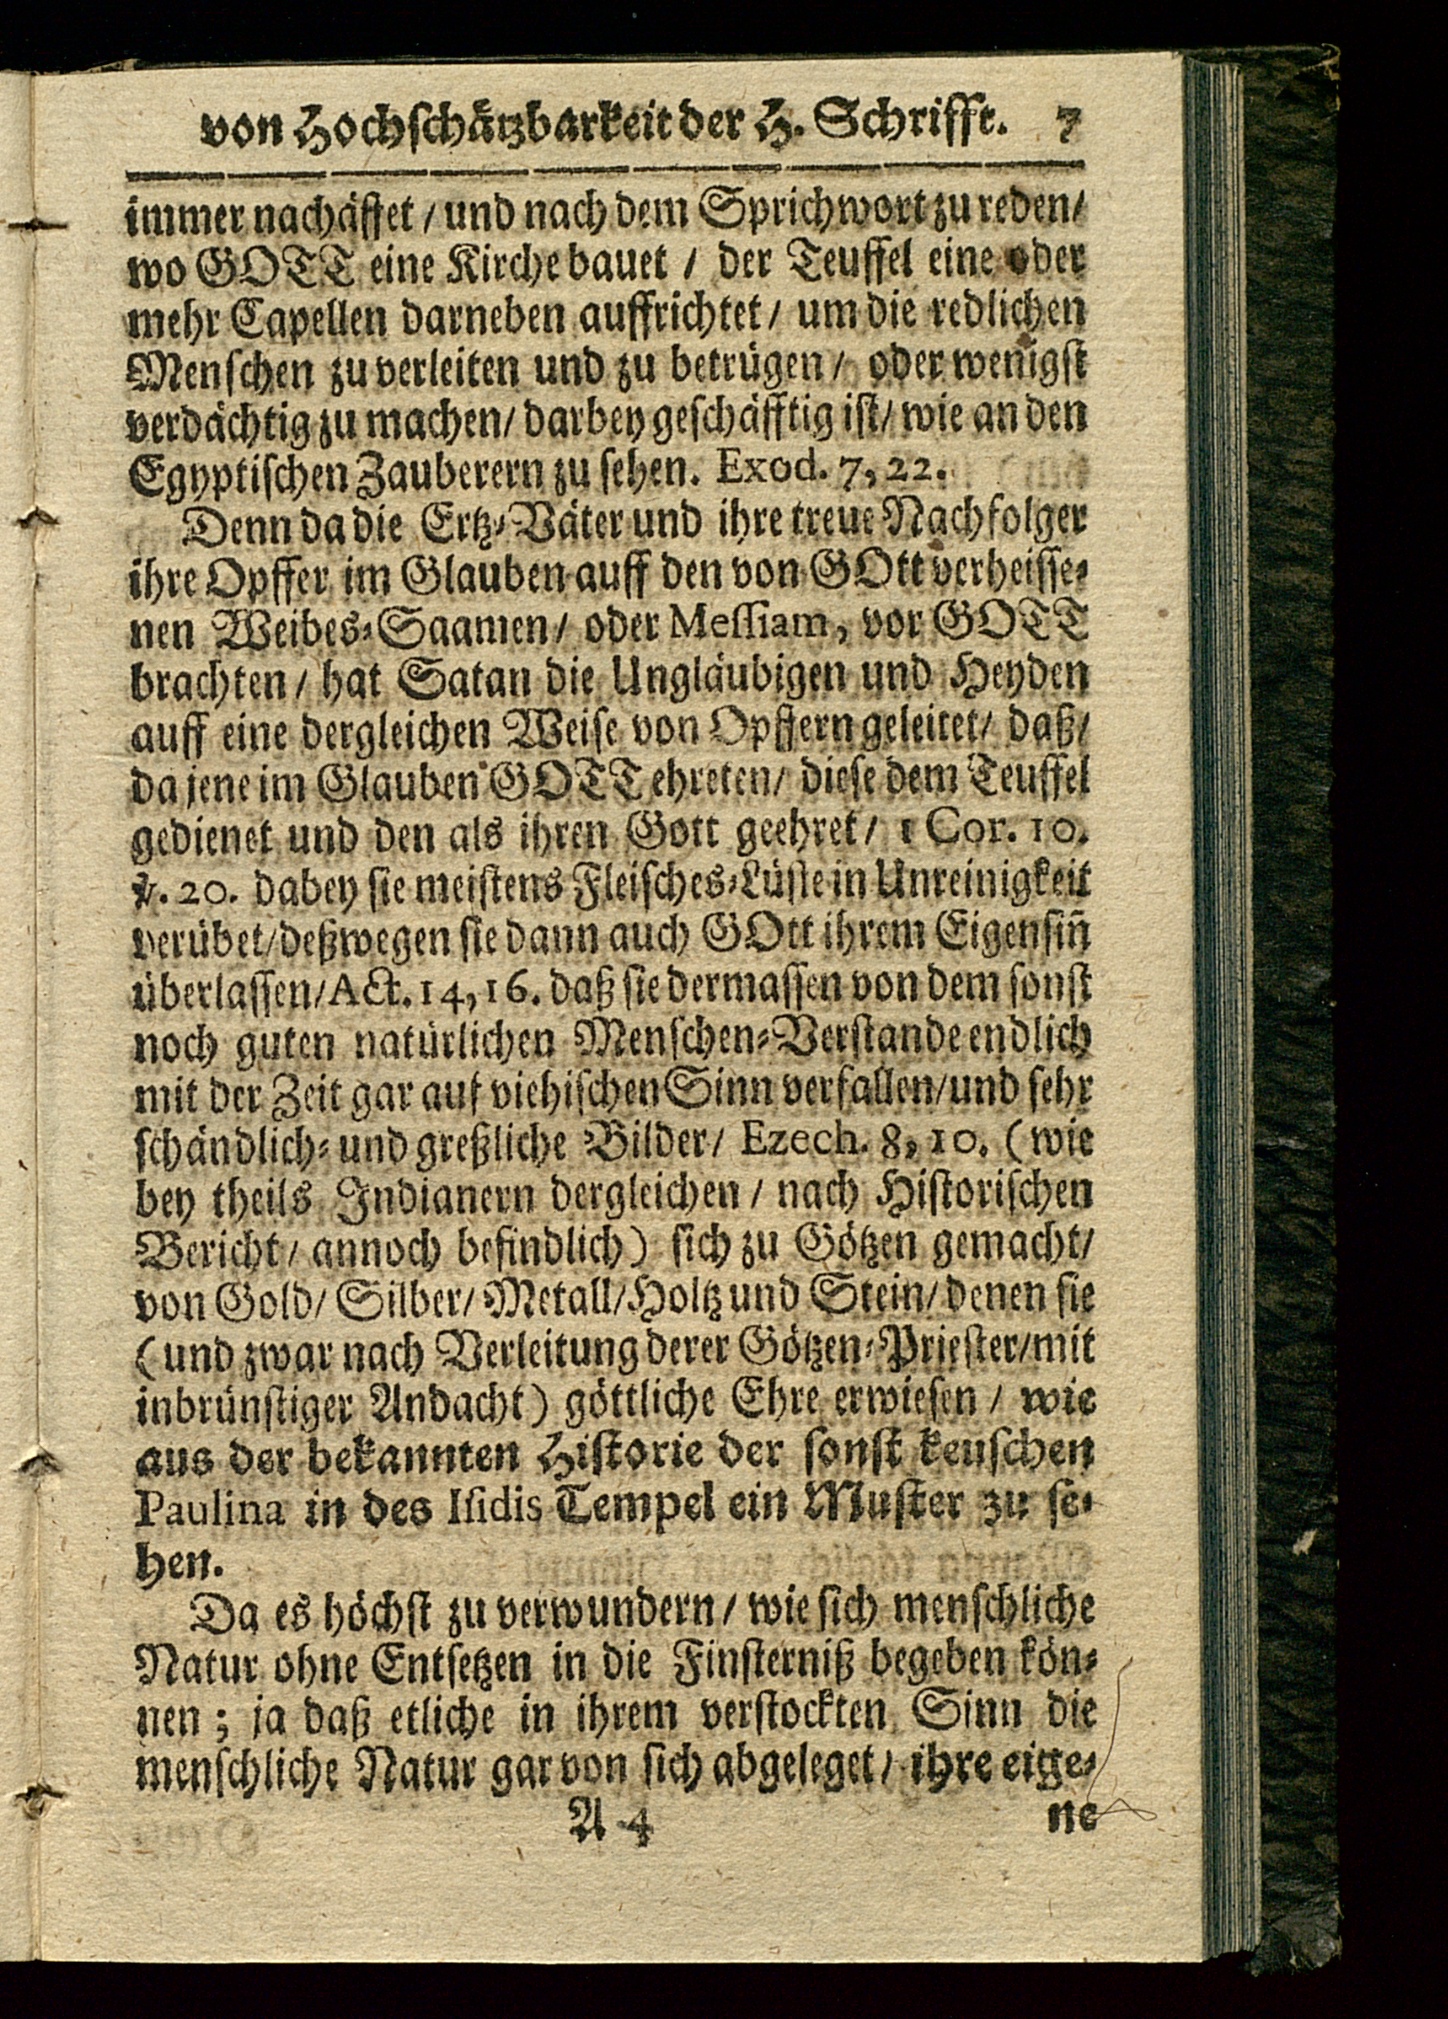 von Hochschätzbarkeit der H. Schrifft. 7
immer nachäffet / und nach dem Sprichwort zu reden/
wo GOTT eine Kirche bauet / der Teuffel eine oder
mehr Capellen darneben auffrichtet / um die redlichen
Menschen zu verleiten und zu betrügen / oder wenigst
verdächtig zu machen / darbey geschäfftig ist / wie an den
Egyptischen Zauberern zu sehen. Exod. 7, 22.
Denn da die Ertz-Väter und ihre treue Nachfolger
ihre Opffer im Glauben auff den von GOtt verheisse-
nen Weibes-Saamen / oder Messiam, vor GOTT
brachten / hat Satan die Ungläubigen und Heyden
auff eine dergleichen Weise von Opffern geleitet / daß /
da jene im Glauben GOTT ehreten / diese dem Teuffel
gedienet und den als ihren Gott geehret / 1 Cor. 10.
℣. 20. dabey sie meistens Fleisches-Lüste in Unreinigkeit
verübet / deßwegen sie dann auch GOtt ihrem Eigensiñ
überlassen / Act. 14, 16. daß sie dermassen von dem sonst
noch guten natürlichen Menschen-Verstande endlich
mit der Zeit gar auf viehischen Sinn verfallen / und sehr
schändlich- und greßliche Bilder / Ezech. 8, 10. (wie
bey theils Indianern dergleichen / nach Historischen
Bericht / annoch befindlich) sich zu Götzen gemacht /
von Gold / Silber / Metall / Holtz und Stein / denen sie
(und zwar nach Verleitung derer Götzen-Priester / mit
inbrünstiger Andacht) göttliche Ehre erwiesen / wie
aus der bekannten Historie der sonst keuschen
Paulina in des Isidis Tempel ein Muster zu se-
hen.
Da es höchst zu verwundern / wie sich menschliche
Natur ohne Entsetzen in die Finsterniß begeben kön-
nen ; ja daß etliche in ihrem verstockten Sinn die
menschliche Natur gar von sich abgeleget / ihre eige-
A 4 ne